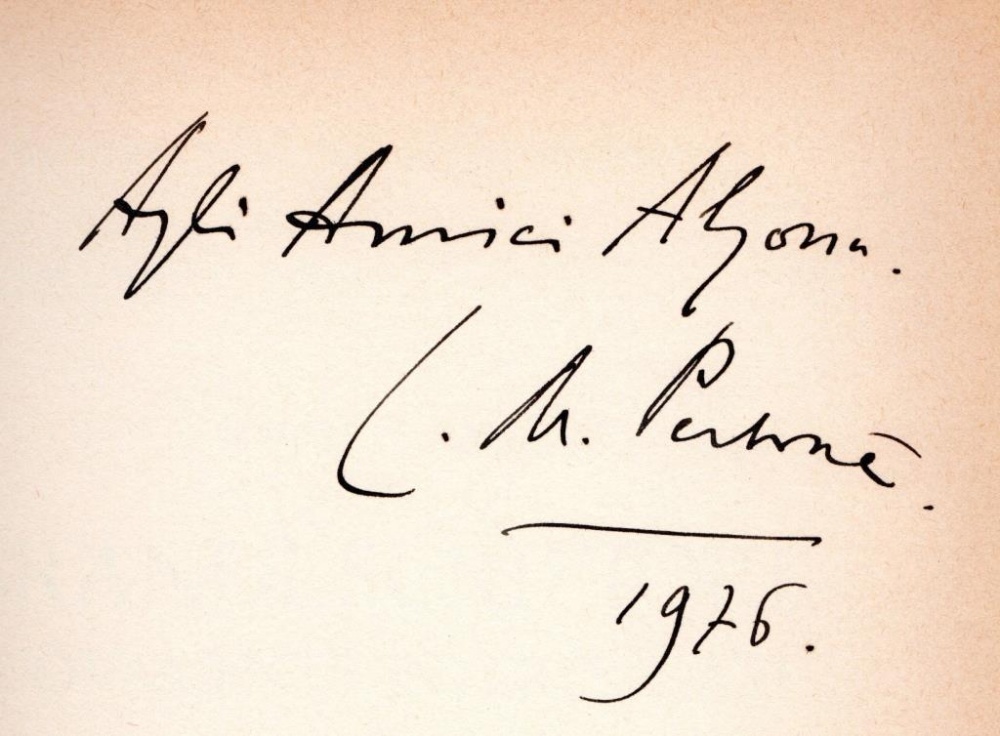 Agli Amici Algona.
C. M. Pertonè.
1976.